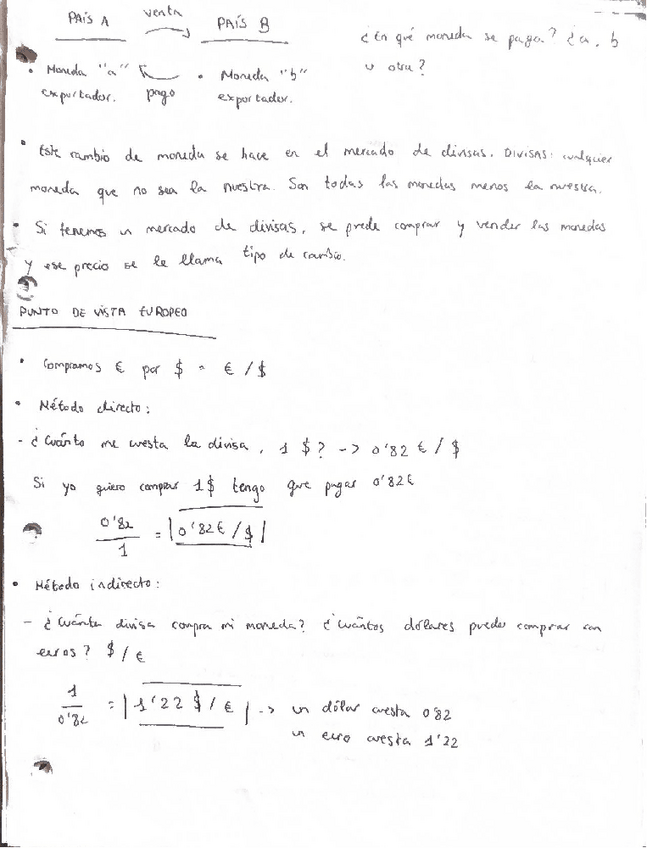 PAÍS A venta PAÍS B
¿En qué moneda se paga? ¿a, b
u otra?
• Moneda "a" • Moneda "b"
exportador. pago exportador.
• Este cambio de moneda se hace en el mercado de divisas. DIVISAS: cualquier
moneda que no sea la nuestra. Son todas las monedas menos la nuestra.
• Si tenemos un mercado de divisas, se puede comprar y vender las monedas
y ese precio se le llama tipo de cambio.
PUNTO DE VISTA EUROPEO
• Compramos € por $ = € / $
• Método directo:
- ¿Cuánto me cuesta la divisa, 1 $? -> 0'82 € / $
Si yo quiero comprar 1$ tengo que pagar 0'82€
0'82
1
= |0'82€/$|
• Método indirecto:
- ¿Cuánta divisa compra mi moneda? ¿Cuántos dólares puedes comprar con
euros? $/€
1
0'82
= |1'22 $/€| -> un dólar cuesta 0'82
un euro cuesta 1'22